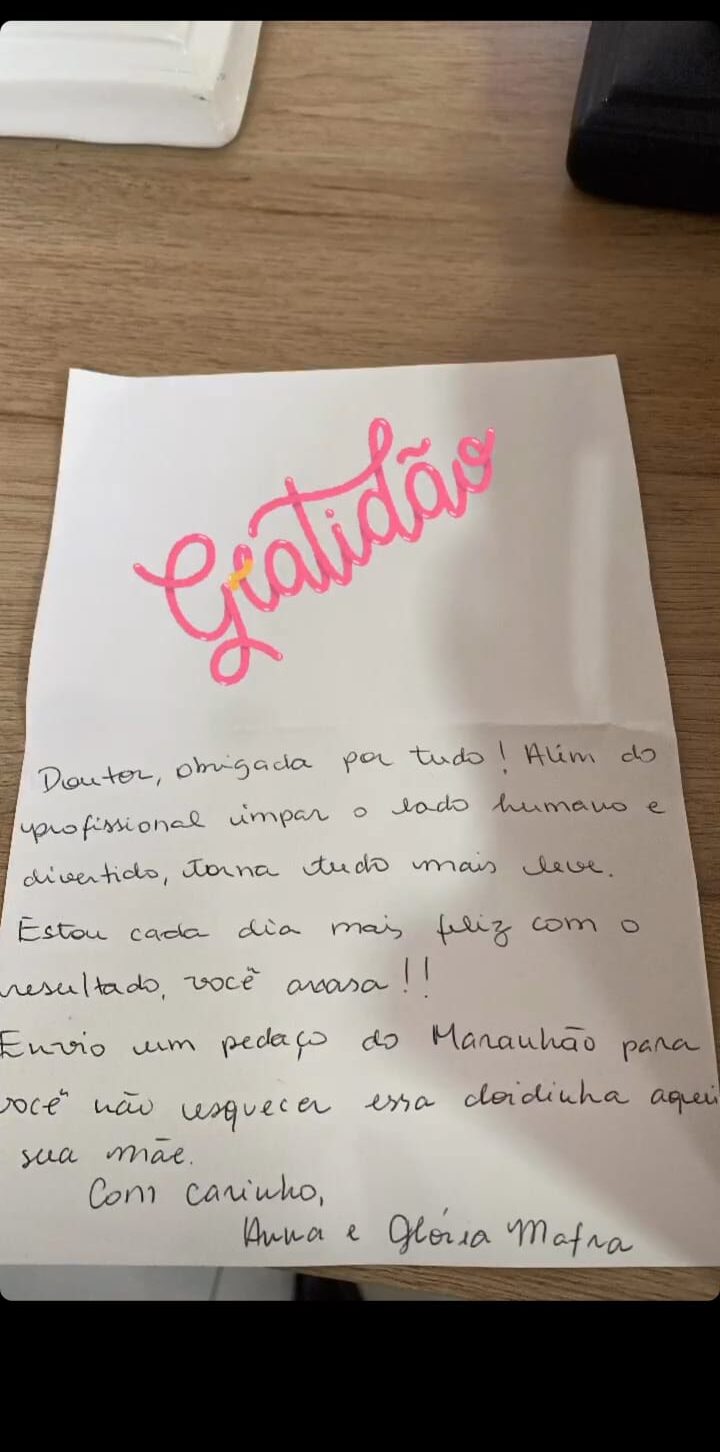 Gratidão
Doutor, obrigada por tudo! Além do
profissional ímpar o lado humano e
divertido, torna tudo mais leve.
Estou cada dia mais feliz com o
resultado, você arrasa!!
Envio um pedaço do Maranhão para
você não esquecer essa doidinha aqui
sua mãe.
Com carinho,
Anna e Glória Mafra